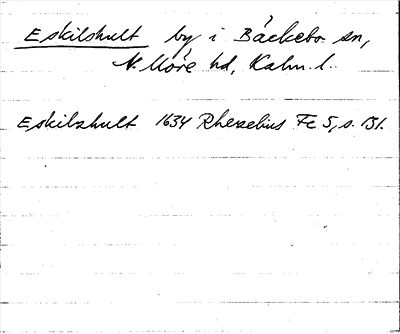 Eskilshult by i Bäckebo sn,
N. Möre hd, Kalm. l.
Eskilzhult 1634 Rhezelius Fc 5, s. 151.